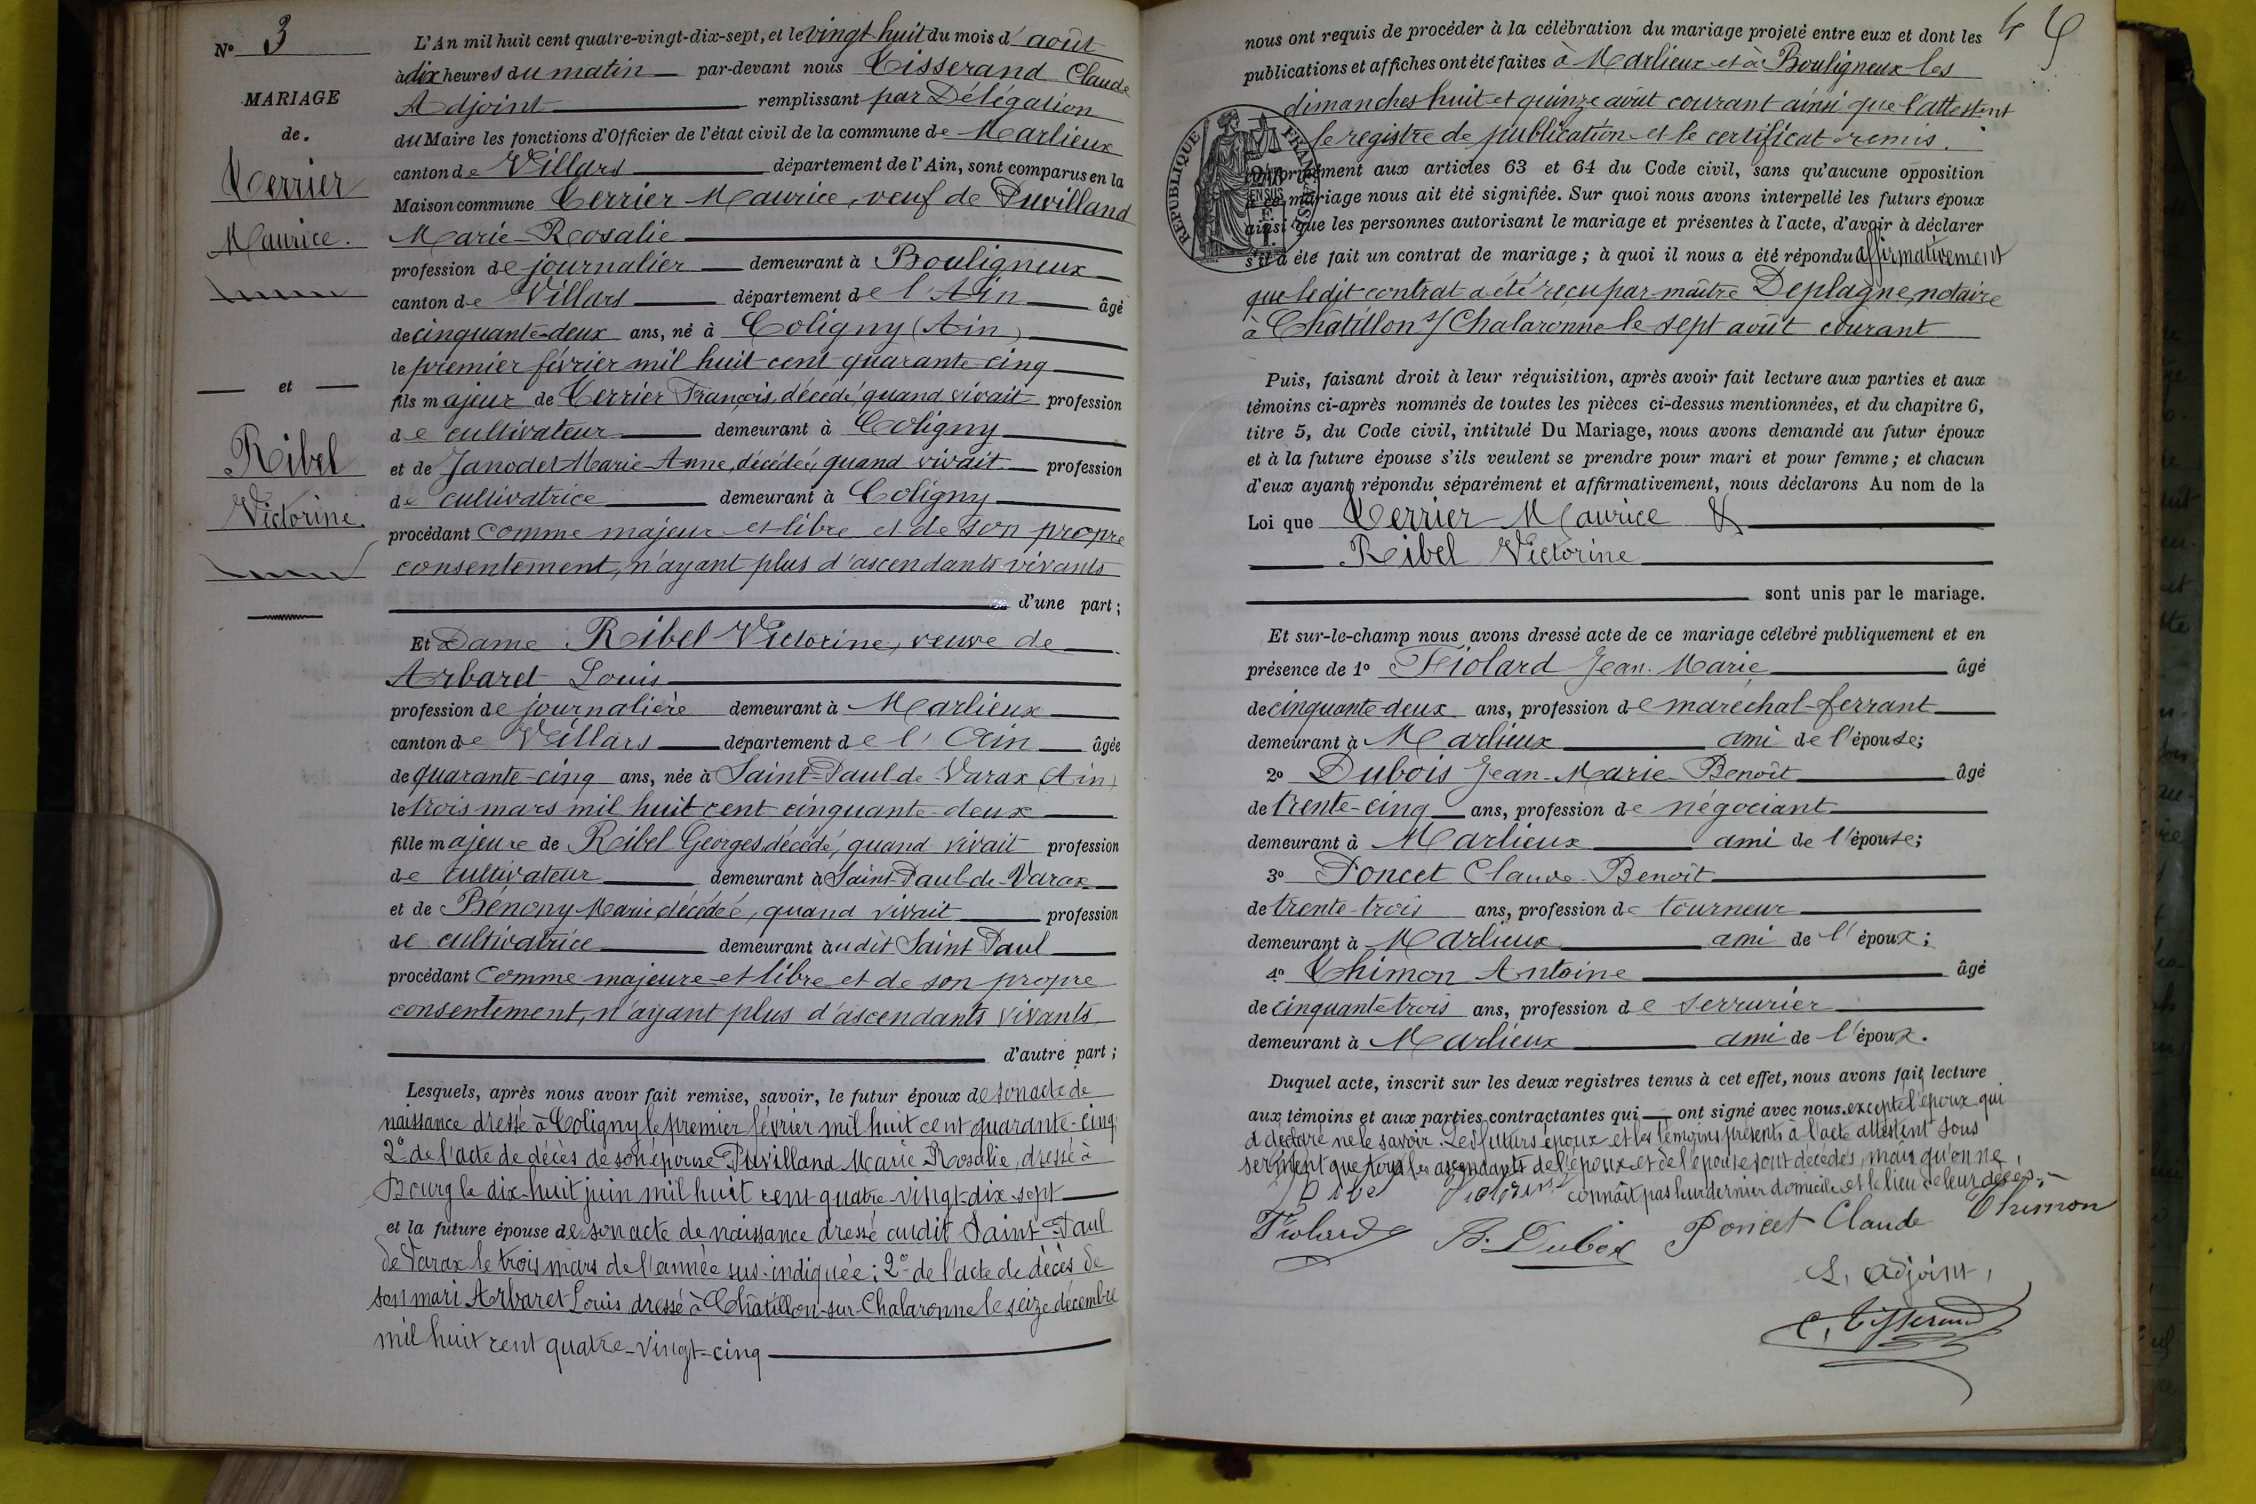 N° 3
MARIAGE
de.
Terrier
Maurice.
et
Ribel
Victorine.
L'An mil huit cent quatre-vingt-dix-sept, et le vingt-huit du mois d'août
à dix heures du matin par-devant nous Tisserand Claude
Adjoint remplissant par Délégation
du Maire les fonctions d'Officier de l'état civil de la commune de Marlieux
canton de Villars département de l'Ain, sont comparus en la
Maison commune Terrier Maurice, veuf de Puvilland
Marie-Rosalie
profession de journalier demeurant à Bouligneux
canton de Villars département de l'Ain âgé
de cinquante-deux ans, né à Coligny (Ain)
le premier février mil huit cent quarante-cinq
fils majeur de Terrier François, décédé, quand vivait profession
de cultivateur demeurant à Coligny
et de Janodet Marie-Anne, décédée, quand vivait profession
de cultivatrice demeurant à Coligny
procédant comme majeur et libre et de son propre
consentement, n'ayant plus d'ascendants vivants
d'une part;
Et Dame Ribel Victorine, veuve de
Arbaret Louis
profession de journalière demeurant à Marlieux
canton de Villars département de l'Ain âgée
de quarante-cinq ans, née à Saint-Paul de Varax (Ain)
le trois mars mil huit cent cinquante-deux
fille majeure de Ribel Georges, décédé, quand vivait profession
de cultivateur demeurant à Saint-Paul-de-Varax
et de Bénony Marie décédée, quand vivait profession
de cultivatrice demeurant audit Saint Paul
procédant comme majeure et libre et de son propre
consentement, n'ayant plus d'ascendants vivants
d'autre part;
Lesquels, après nous avoir fait remise, savoir, le futur époux de son acte de
naissance dressé à Coligny le premier février mil huit cent quarante-cinq
2° de l'acte de décès de son épouse Puvilland Marie Rosalie, dressé à
Bourg le dix-huit juin mil huit cent quatre-vingt-dix-sept
et la future épouse de son acte de naissance dressé audit Saint-Paul
de Varax le trois mars de l'année sus-indiquée; 2° de l'acte de décès de
son mari Arbaret Louis dressé à Châtillon-sur-Chalaronne le seize décembre
mil huit cent quatre-vingt-cinq
4
nous ont requis de procéder à la célébration du mariage projeté entre eux et dont les
publications et affiches ont été faites à Marlieux et à Bouligneux les
dimanches huit et quinze août courant ainsi que l'attestent
le registre de publication et le certificat remis.
RÉPUBLIQUE FRANÇAISE
EN SUS
conformément aux articles 63 et 64 du Code civil, sans qu'aucune opposition
à ce mariage nous ait été signifiée. Sur quoi nous avons interpellé les futurs époux
ainsi que les personnes autorisant le mariage et présentes à l'acte, d'avoir à déclarer
s'il a été fait un contrat de mariage; à quoi il nous a été répondu affirmativement
que ledit contrat a été reçu par maître Deplagne, notaire
à Châtillon s/ Chalaronne le sept août courant
Puis, faisant droit à leur réquisition, après avoir fait lecture aux parties et aux
témoins ci-après nommés de toutes les pièces ci-dessus mentionnées, et du chapitre 6,
titre 5, du Code civil, intitulé Du Mariage, nous avons demandé au futur époux
et à la future épouse s'ils veulent se prendre pour mari et pour femme; et chacun
d'eux ayant répondu séparément et affirmativement, nous déclarons Au nom de la
Loi que Terrier Maurice &
Ribel Victorine
sont unis par le mariage.
Et sur-le-champ nous avons dressé acte de ce mariage célébré publiquement et en
présence de 1° Fiolard Jean-Marie âgé
de cinquante-deux ans, profession de maréchal-ferrant
demeurant à Marlieux ami de l'épouse;
2° Dubois Jean-Marie-Benoît âgé
de trente-cinq ans, profession de négociant
demeurant à Marlieux ami de l'épouse;
3° Poncet Claude-Benoît
de trente-trois ans, profession de tourneur
demeurant à Marlieux ami de l'époux;
4° Thimon Antoine âgé
de cinquante trois ans, profession de serrurier
demeurant à Marlieux ami de l'époux.
Duquel acte, inscrit sur les deux registres tenus à cet effet, nous avons fait lecture
aux témoins et aux parties contractantes qui ont signé avec nous. excepté l'époux qui
a déclaré ne le savoir. Les futurs époux et les témoins présents à l'acte attestent sous
serment que tous les ascendants de l'époux et de l'épouse sont décédés, mais qu'on ne
connaît pas leur dernier domicile et le lieu de leur décès.
Ribel Victorine
Fiolard B. Dubois Poncet Claude Thimon
L'adjoint,
C. Tisserand